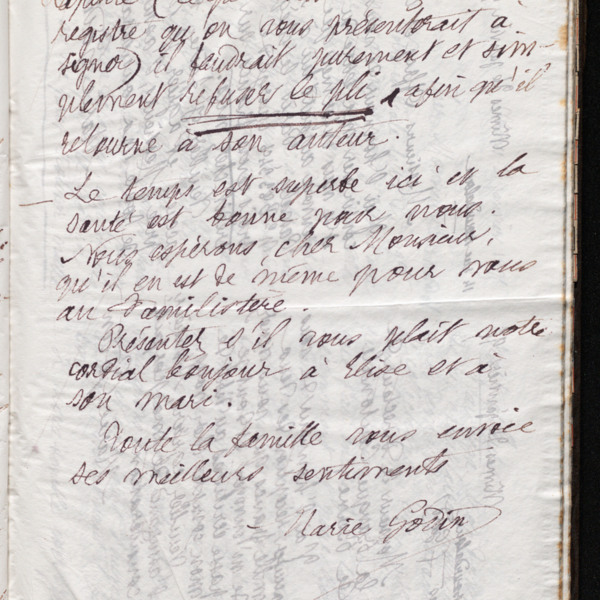 registre qu'on vous présenterait à
signer) il faudrait purement et sim-
plement refuser le pli, afin qu'il
retourne à son auteur.
— Le temps est superbe ici et la
santé est bonne pour nous.
Nous espérons, cher Monsieur,
qu'il en est de même pour vous
au Familistère.
Présentez s'il vous plait notre
cordial bonjour à Elise et à
son mari.
Toute la famille vous envoie
ses meilleurs sentiments
— Marie Godin